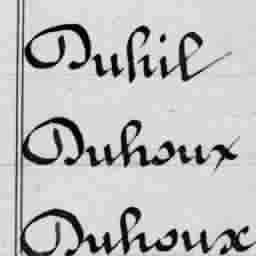 Duhil
Duhoux
Duhoux